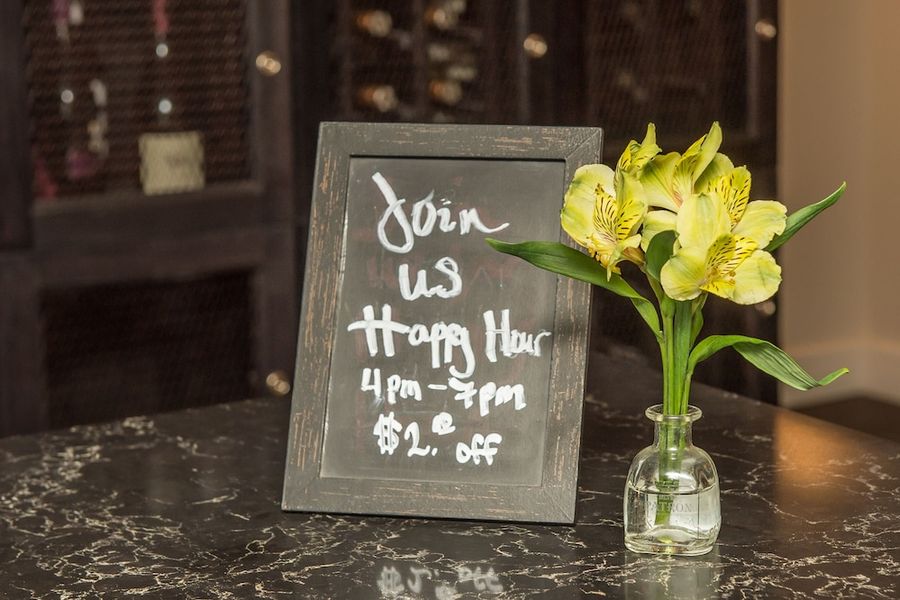 Join
us
Happy Hour
4pm-7pm
$2.00 off
PATRON